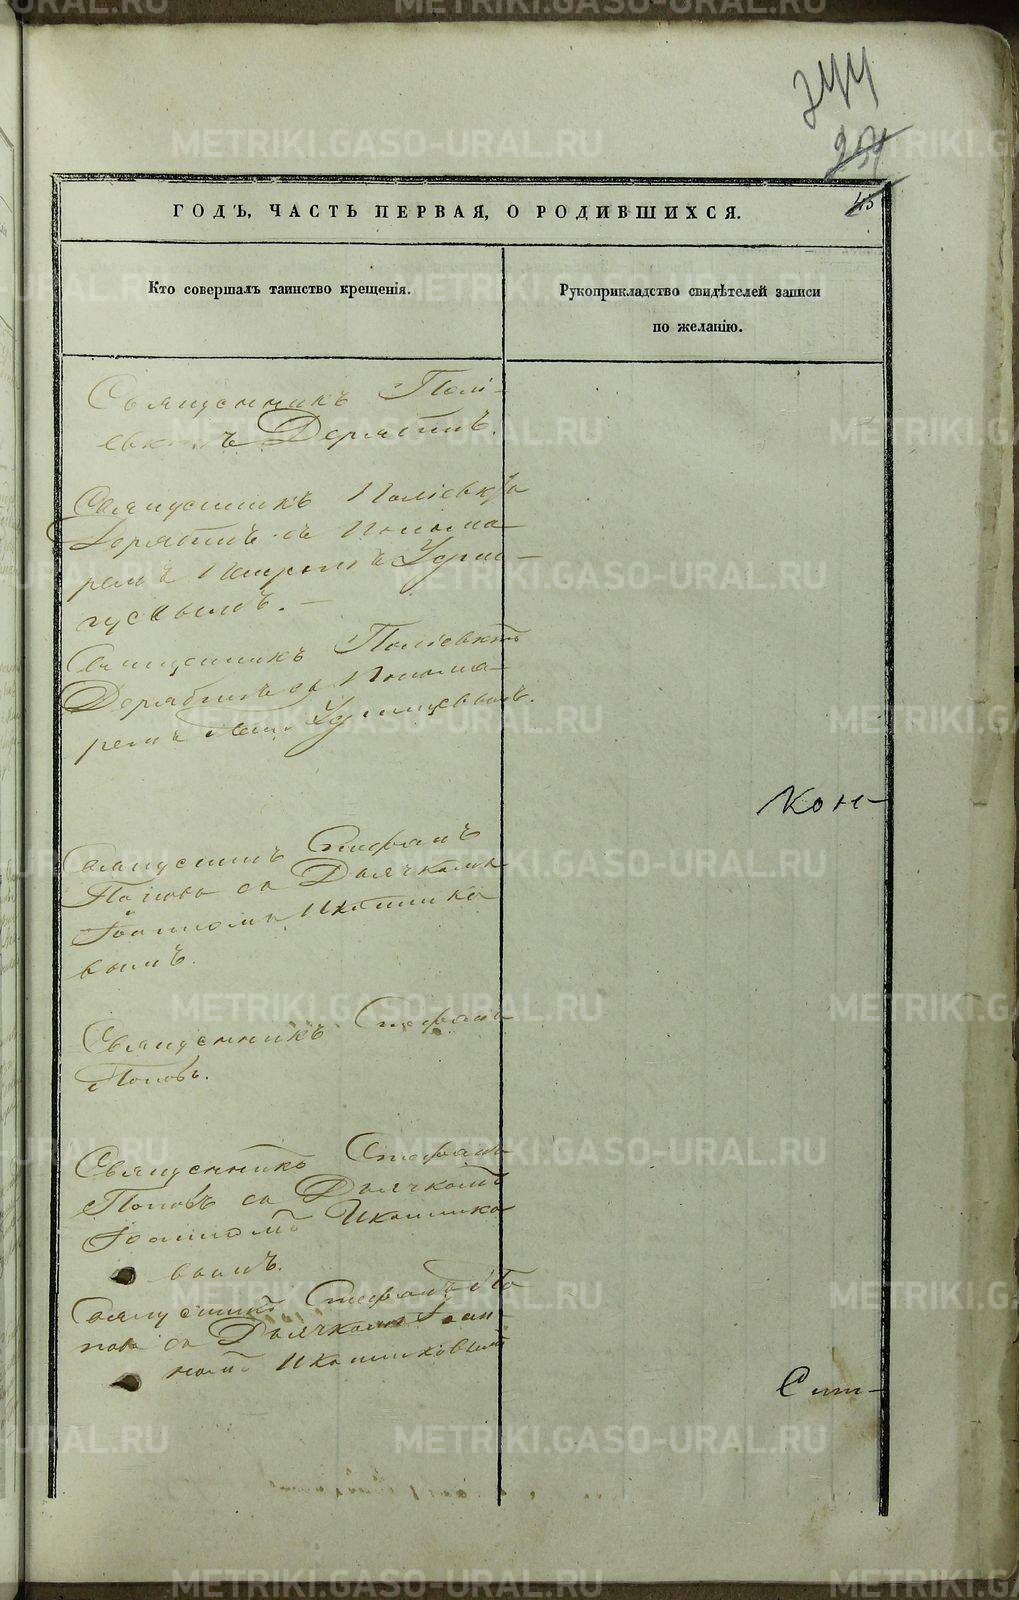 244
257
45
ГОДЪ, ЧАСТЬ ПЕРВАЯ, О РОДИВШИХСЯ.
Кто совершалъ таинство крещенія.
Рукоприкладство свидѣтелей записи
по желанію.
Священникъ Полі-
евктъ Дерябинъ.
Священникъ Поліевктъ
Дерябинъ съ Понома
ремъ
Священникъ Поліевктъ
Дерябинъ съ Понома
ремъ
Кон-
Священникъ Стефанъ
Поповъ съ Дьячкомъ
Іоанномъ Иконнико
вымъ.
Священникъ Стефанъ
Поповъ.
Священникъ Стефанъ
Поповъ съ Дьячкомъ
Іоанномъ Иконнико
вымъ.
Священникъ Стефанъ По
повъ съ Дьячкомъ Іоан-
номъ Иконниковымъ
METRIKI.GASO-URAL.RU